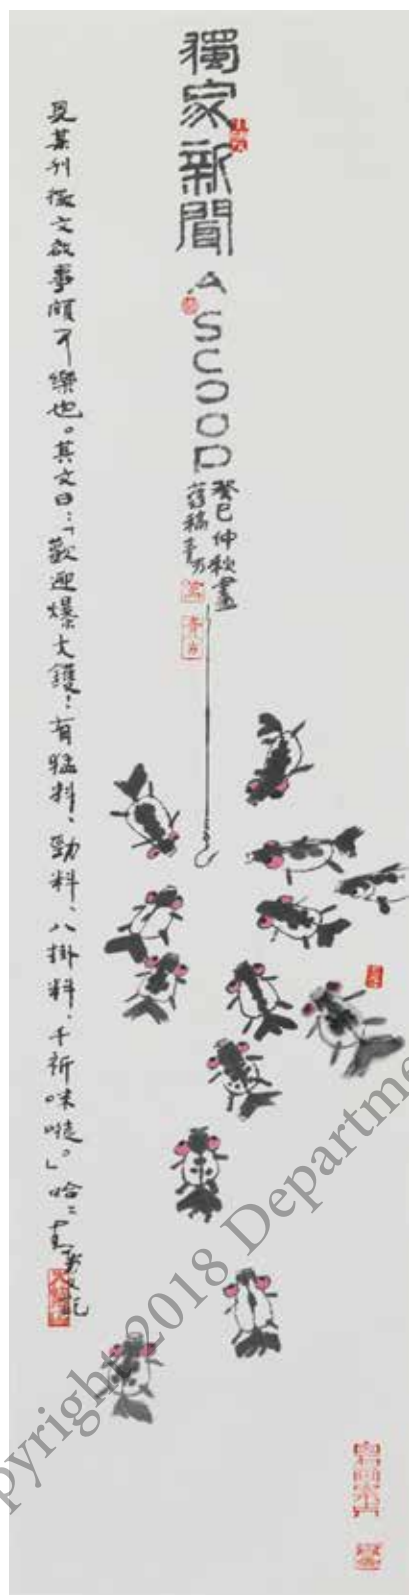 獨家新聞
A SCOOP
癸巳仲秋畫
舊稿
見某刊徵文啟事頗可樂也。其文曰：「歡迎爆大鑊！有猛料、勁料、八掛料，千祈咪嘥。」哈二
pyright 2018 Departme